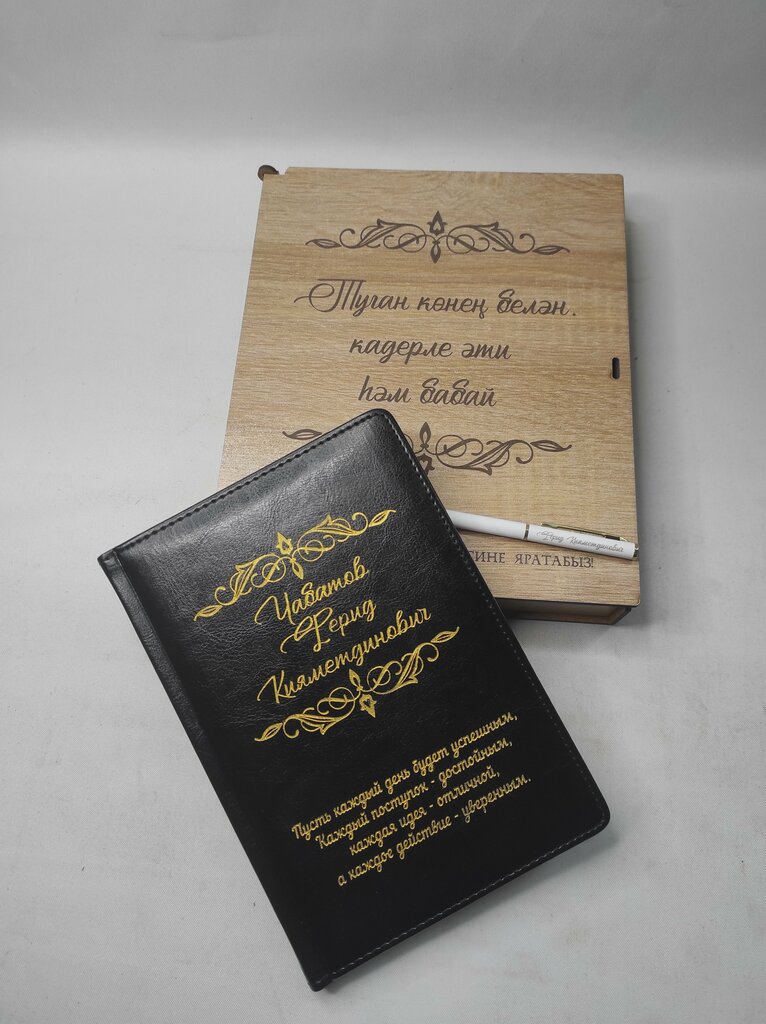 Туган көнең белән,
кадерле әти
һәм бабай
ЯРАТАБЫЗ!
Ферид Кияметдинович
Чабатов
Ферид
Кияметдинович
Пусть каждый день будет успешным,
Каждый поступок - достойным,
каждая идея - отличной,
а каждое действие - уверенным.